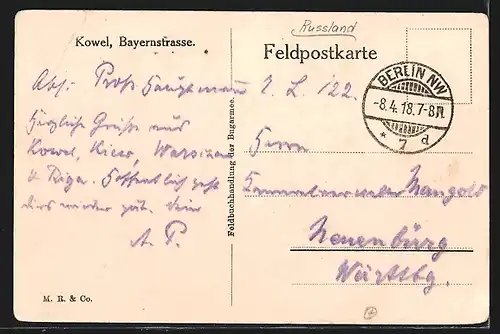 Russland
Kowel, Bayernstrasse.
Feldpostkarte
BERLIN NW
-8.4.18.7-8N
* 7 d
Abs: Prof. Hauptmann L. 122.
Herzliche Grüße aus
Kowel, Kiew, Warschau
u Riga. Hoffentlich geht
dies wieder gut. Dein
A. P.
Feldbuchhandlung der Bugarmee.
Herrn
Mangold
Neuenbürg
Württbg.
M. R. & Co.